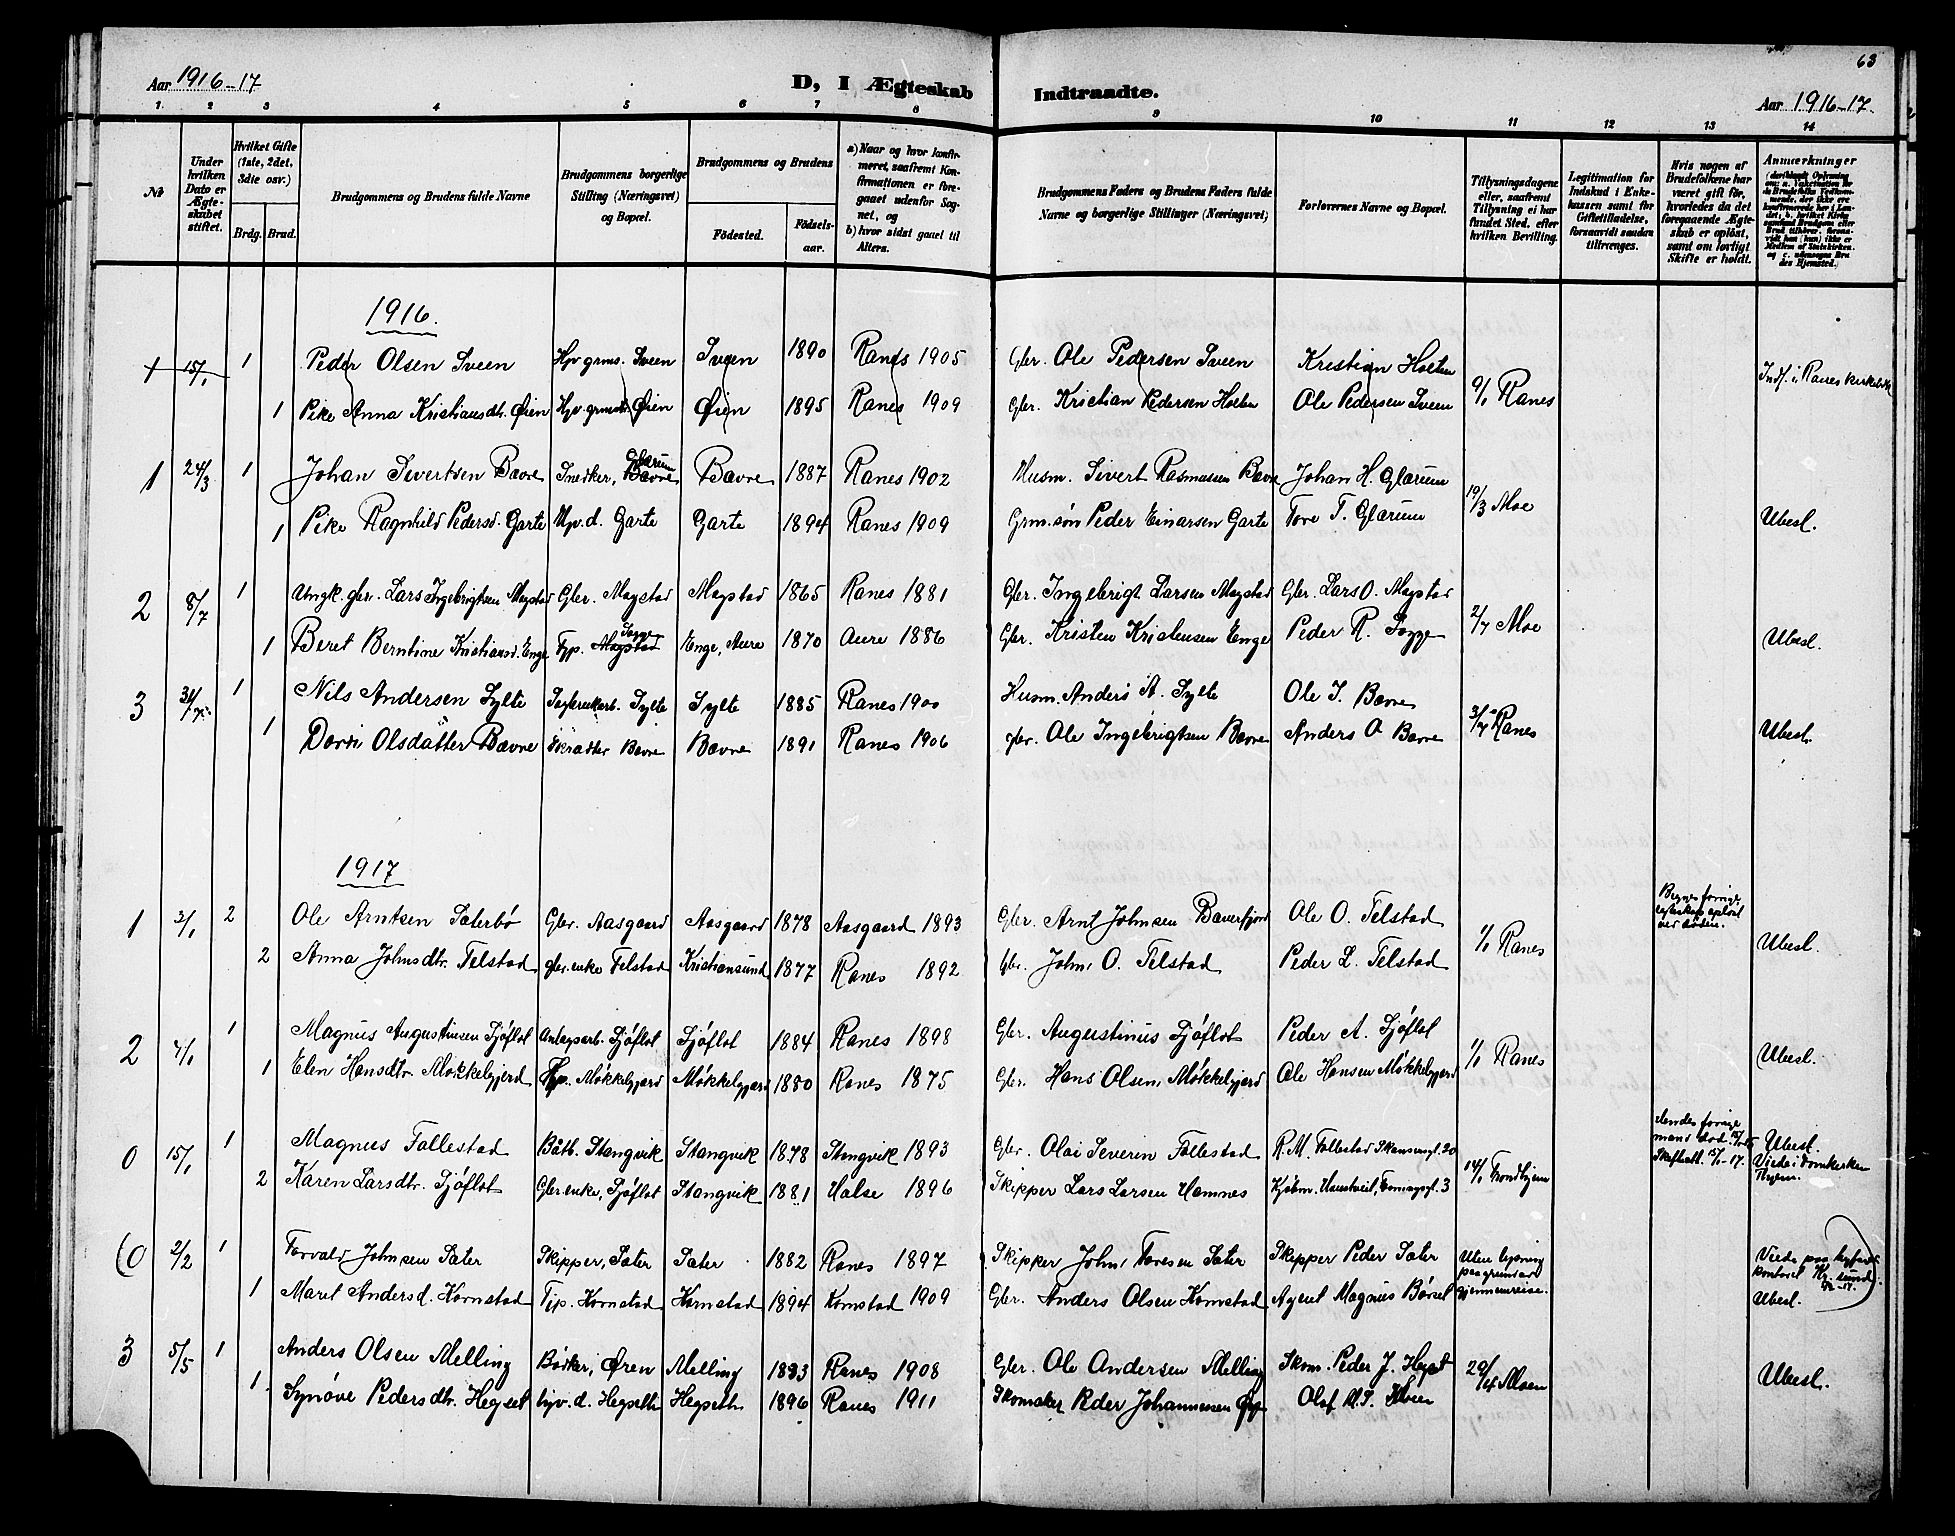 63
Aar 1916-17
D, I Ægteskab Indtraadte.
Aar 1916-17.
1 2 3 4 5 6 7 8 9 10 11 12 13 14
No
Under hvilken Dato er Ægteskabet stiftet.
Hvilket Gifte (1ste, 2det, 3die osv.)
Brdg. Brud.
Brudgommens og Brudens fulde Navne
Brudgommens borgerlige Stilling (Næringsvei) og Bopæl.
Brudgommens og Brudens
Födested.
Födselsaar.
a) Naar og hvor konfirmeret, saafremt Konfirmationen er foregaaet udenfor Sognet, og
b) hvor sidst gaaet til Alters.
Brudgommens Faders og Brudens Faders fulde Navne og borgerlige Stillinger (Næringsvei)
Forlovernes Navne og Bopæl.
Tillysningsdagene eller, saafremt Tillysning ei har fundet Sted, efter hvilken Bevilling.
Legitimation for Indskud i Enkekassen samt for Giftetilladelse, forsaavidt saadan tiltrænges.
Hvis nogen af Brudefolkene har været gift för, hvorledes da det foregaaende Ægteskab er oplöst, samt om lovligt Skifte er holdt.
Anmærkninger
1916.
1 15/1 1 Peder Olsen Sveen Hpv grms. Sveen Sveen 1890 Ranes 1905 Gbr. Ole Pedersen Sveen Kristian Holten 9/1 Ranes Indf. i Ranes kirkebok
1 Pike Anna Kristiansdt. Øien Hpv grmd. Øien Øien 1895 Ranes 1909 Gbr. Kristian Pedersen Holten Ole Pedersen Sveen
1 24/3 1 Johan Sivertsen Bævre Snedker, Bævre Glærum Bævre 1887 Ranes 1902 Husm. Sivert Rasmussen Bævre Johan H. Glærum 19/3 Moe
1 Pike Ragnhild Pedersd. Garte Hpv. d. Garte Garte 1894 Ranes 1909 Grm.søn Peder Einarsen Garte Tore T. Glærum Ubesl.
2 8/7 1 Ungk. gbr. Lars Ingebrigtsen Mogstad Gbr. Mogstad Mogstad 1865 Ranes 1881 Gbr. Ingebrigt Larsen Mogstad Gbr. Lars O. Mogstad 2/7 Moe
1 Beret Berntine Kristiansd. Enge Typ. Mogstad Enge, Aure 1870 Aure 1886 Gbr. Kristen Kristensen Enge Peder R. Sogge Ubesl.
3 31/7 1 Nils Andersen Sylte Sylte Sylte 1885 Ranes 1900 Husm. Anders A. Sylte Ole I. Bævre 3/7 Ranes
1 Olsdatter Bævre Bævre Bævre 1891 Ranes 1906 Gbr. Ole Ingebrigtsen Bævre Anders O Bævre Ubesl.
1917
1 3/1 2 Ole Arntsen Sæterbø Gbr. Aasgaard Aasgaard 1878 Aasgaard 1893 Gbr. Arnt Johnsen Bæverfjord Ole O. Telstad 1/1 Ranes Begges forrige egteskap opløst ved døden.
2 Anna Johnsdtr. Telstad Gbr.enke Telstad Kristiansund 1877 Ranes 1892 Gbr. John O. Telstad Peder L. Telstad Ubesl.
2 4/1 1 Magnus Augustinusen Sjøflot Anlægsarb. Sjøflot Sjøflot 1884 Ranes 1898 Gbr. Augustinus Sjøflot Peder A. Sjøflot 1/1 Ranes
1 Elen Hansdtr. Møkkelgjerd Typ. Møkkelgjerd Møkkelgjerd 1880 Ranes 1875 Gbr. Hans Olsen, Møkkelgjerd Ole Hansen Møkkelgjerd Ubesl.
0 15/1 1 Magnus Tallestad Båtb. Stangvik Stangvik 1878 Stangvik 1893 Gbr. Olai Severin Tallestad R. M. Tallestad 20 14/1 Trondhjem Hendes forrige mand død Skifteatt. 15/1-17. Ubesl. Viede i Domkirken Thjem.
2 Karen Larsdtr. Sjøflot Gbr.enke, Sjøflot Stangvik 1881 Halse 1896 Skipper Lars Larsen Hamnes Kjøbm. 3
(0 2/2 1 Torvald Johnsen Sæter Skipper, Sæter Sæter 1882 Ranes 1897 Skipper John Toresen Sæter Skipper Peder Sæter Uten lysning paa grund av gjennemreise. Viede paa byfoged kontoret Kr. sund
1 Maret Andersd. Kornstad Tjp. Kornstad Kornstad 1894 Kornstad 1909 Gbr. Anders Olsen Kornstad Agent Magnus Børset Ubesl.
3 5/5 1 Anders Olsen Melling Bødker, Øren Melling 1893 Ranes 1908 Gbr. Ole Andersen Melling Skom. Peder J. 29/4 Moen
1 Synøve Pedersdtr. Hegset hjv. d. Hegseth Hegseth 1896 Ranes 1911 Skomaker Peder Johannessen Olaf Ubesl.